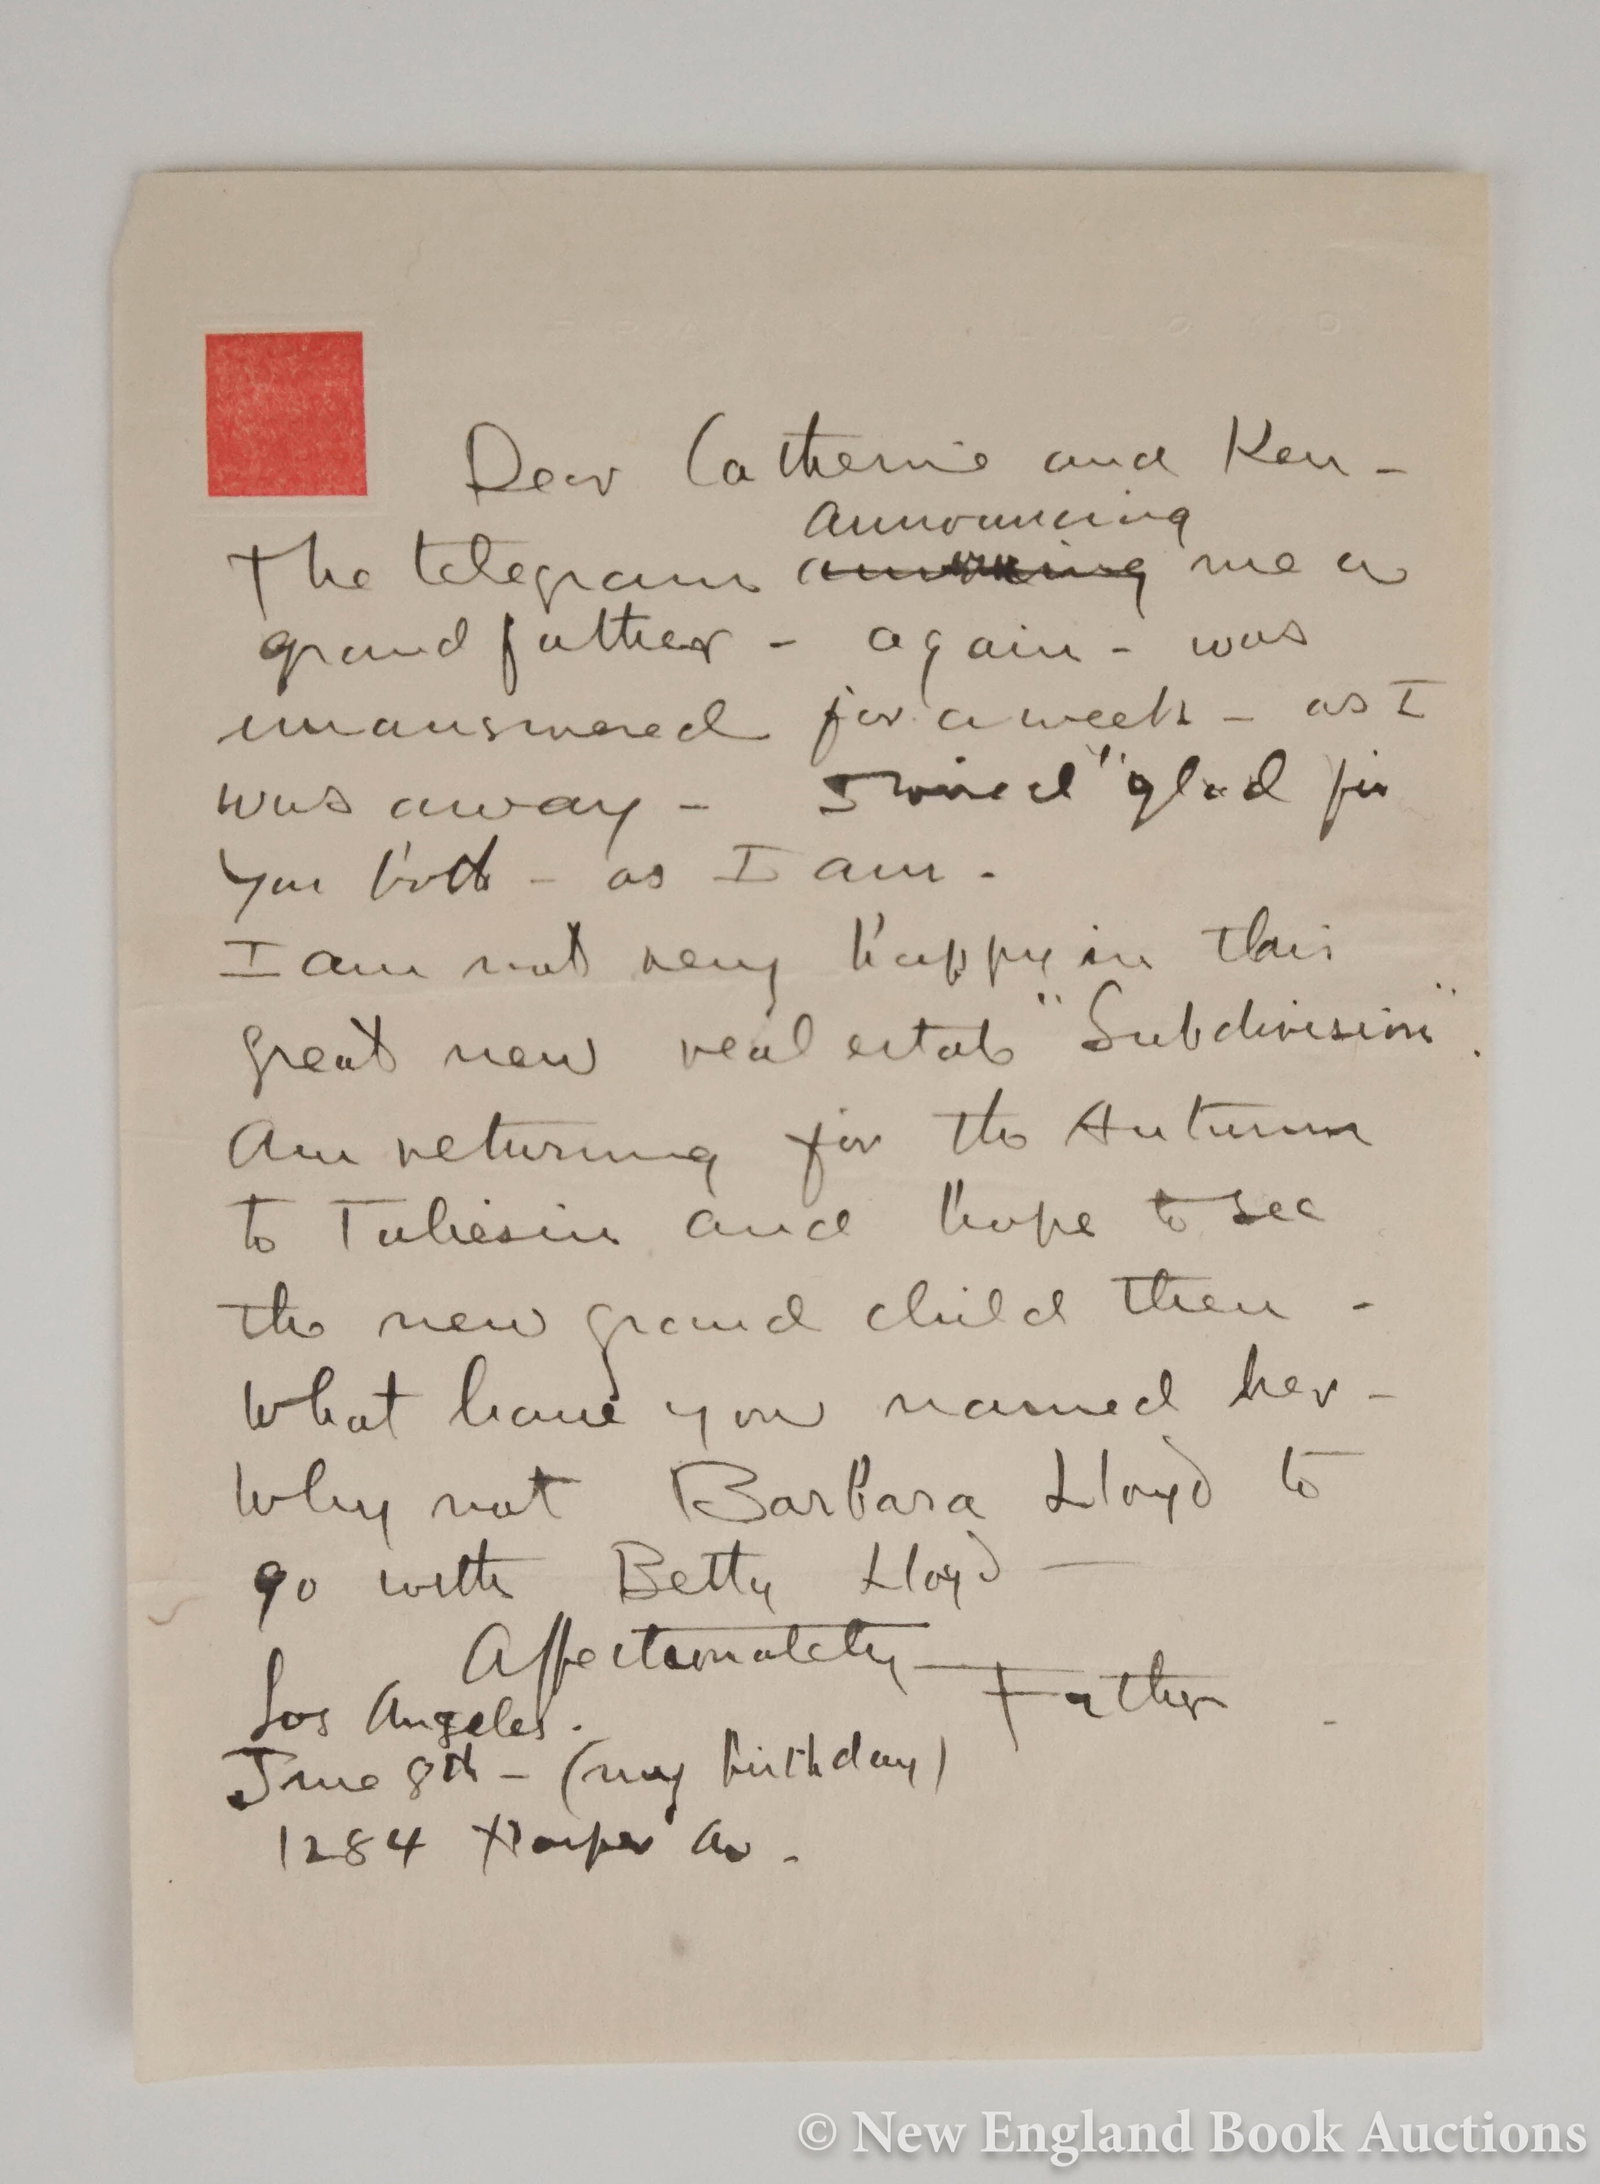 Dear Catherine and Ken -
announcing
The telegram me a
grandfather - again - was
unanswered for a week - as I
was away - I wired "glad for
you both - as I am.
I am not very happy in this
great new real estate "Subdivision".
Am returning for the Autumn
to Taliesin and hope to see
the new grand child then -
What have you named her -
Why not Barbara Lloyd to
go with Betty Lloyd —
Affectionately — Father
Los Angeles.
June 8th - (my birthday)
1284 Harper Av.
© New England Book Auctions